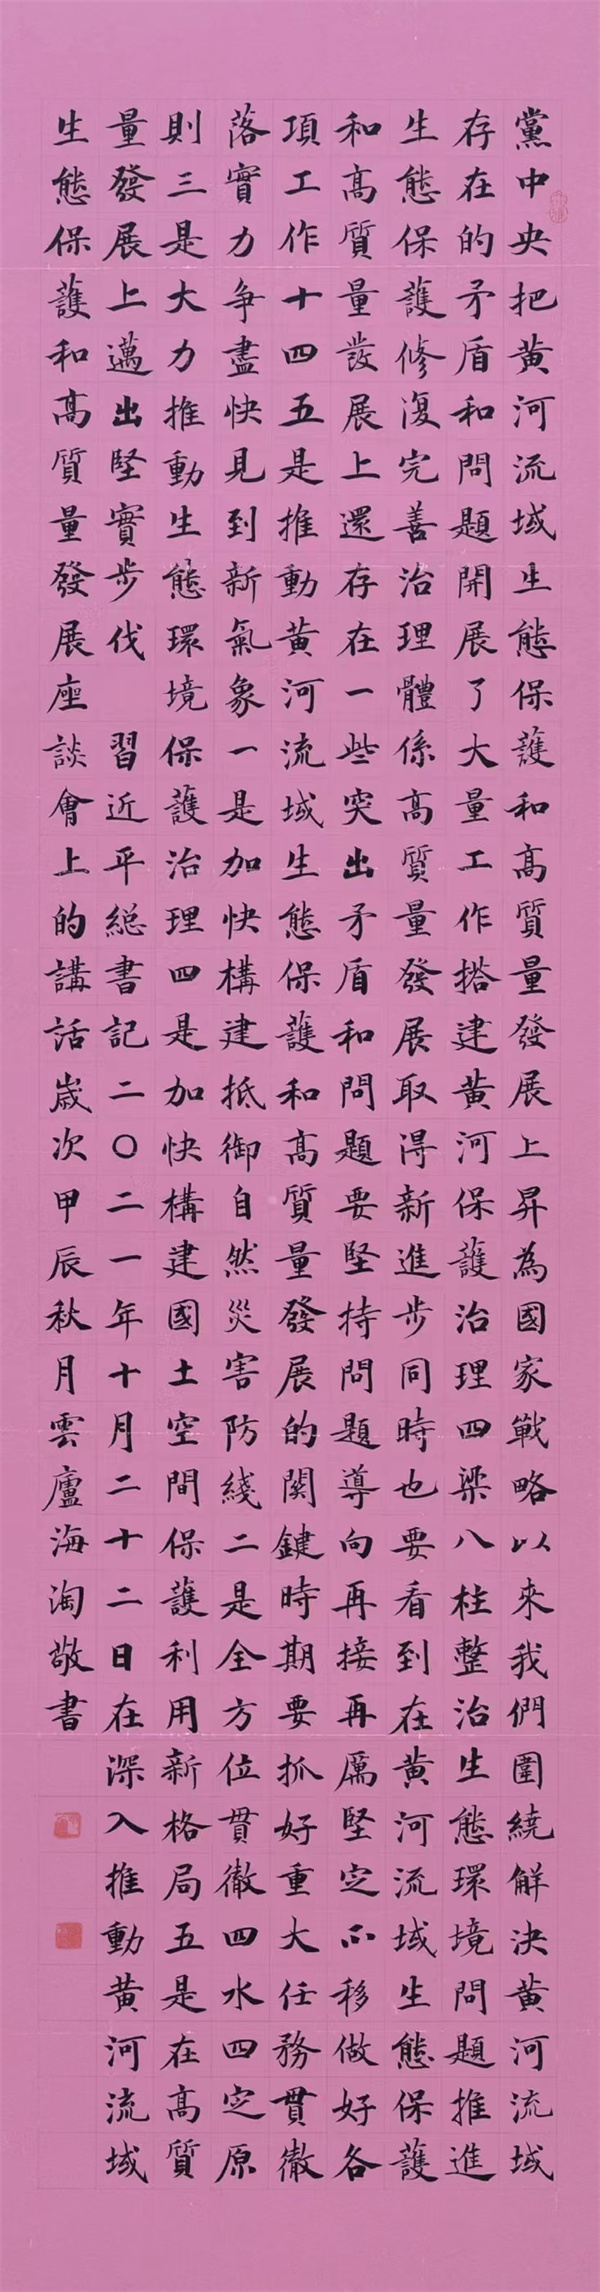 黨中央把黄河流域生態保護和高質量發展上昇為國家戰略以來我們圍繞解決黄河流域
存在的矛盾和問題開展了大量工作搭建黄河保護治理四梁八柱整治生態環境問題推進
生態保護修復完善治理體係高質量發展取得新進步同時也要看到在黄河流域生態保護
和高質量發展上還存在一些突出矛盾和問題要堅持問題導向再接再厲堅定不移做好各
項工作十四五是推動黄河流域生態保護和高質量發展的關鍵時期要抓好重大任務貫徹
落實力争盡快見到新氣象一是加快構建抵御自然災害防綫二是全方位貫徹四水四定原
則三是大力推動生態環境保護治理四是加快構建國土空間保護利用新格局五是在高質
量發展上邁出堅實步伐 習近平総書記二〇二一年十月二十二日在深入推動黄河流域
生態保護和高質量發展座談會上的講話歲次甲辰秋月雲廬海淘敬書